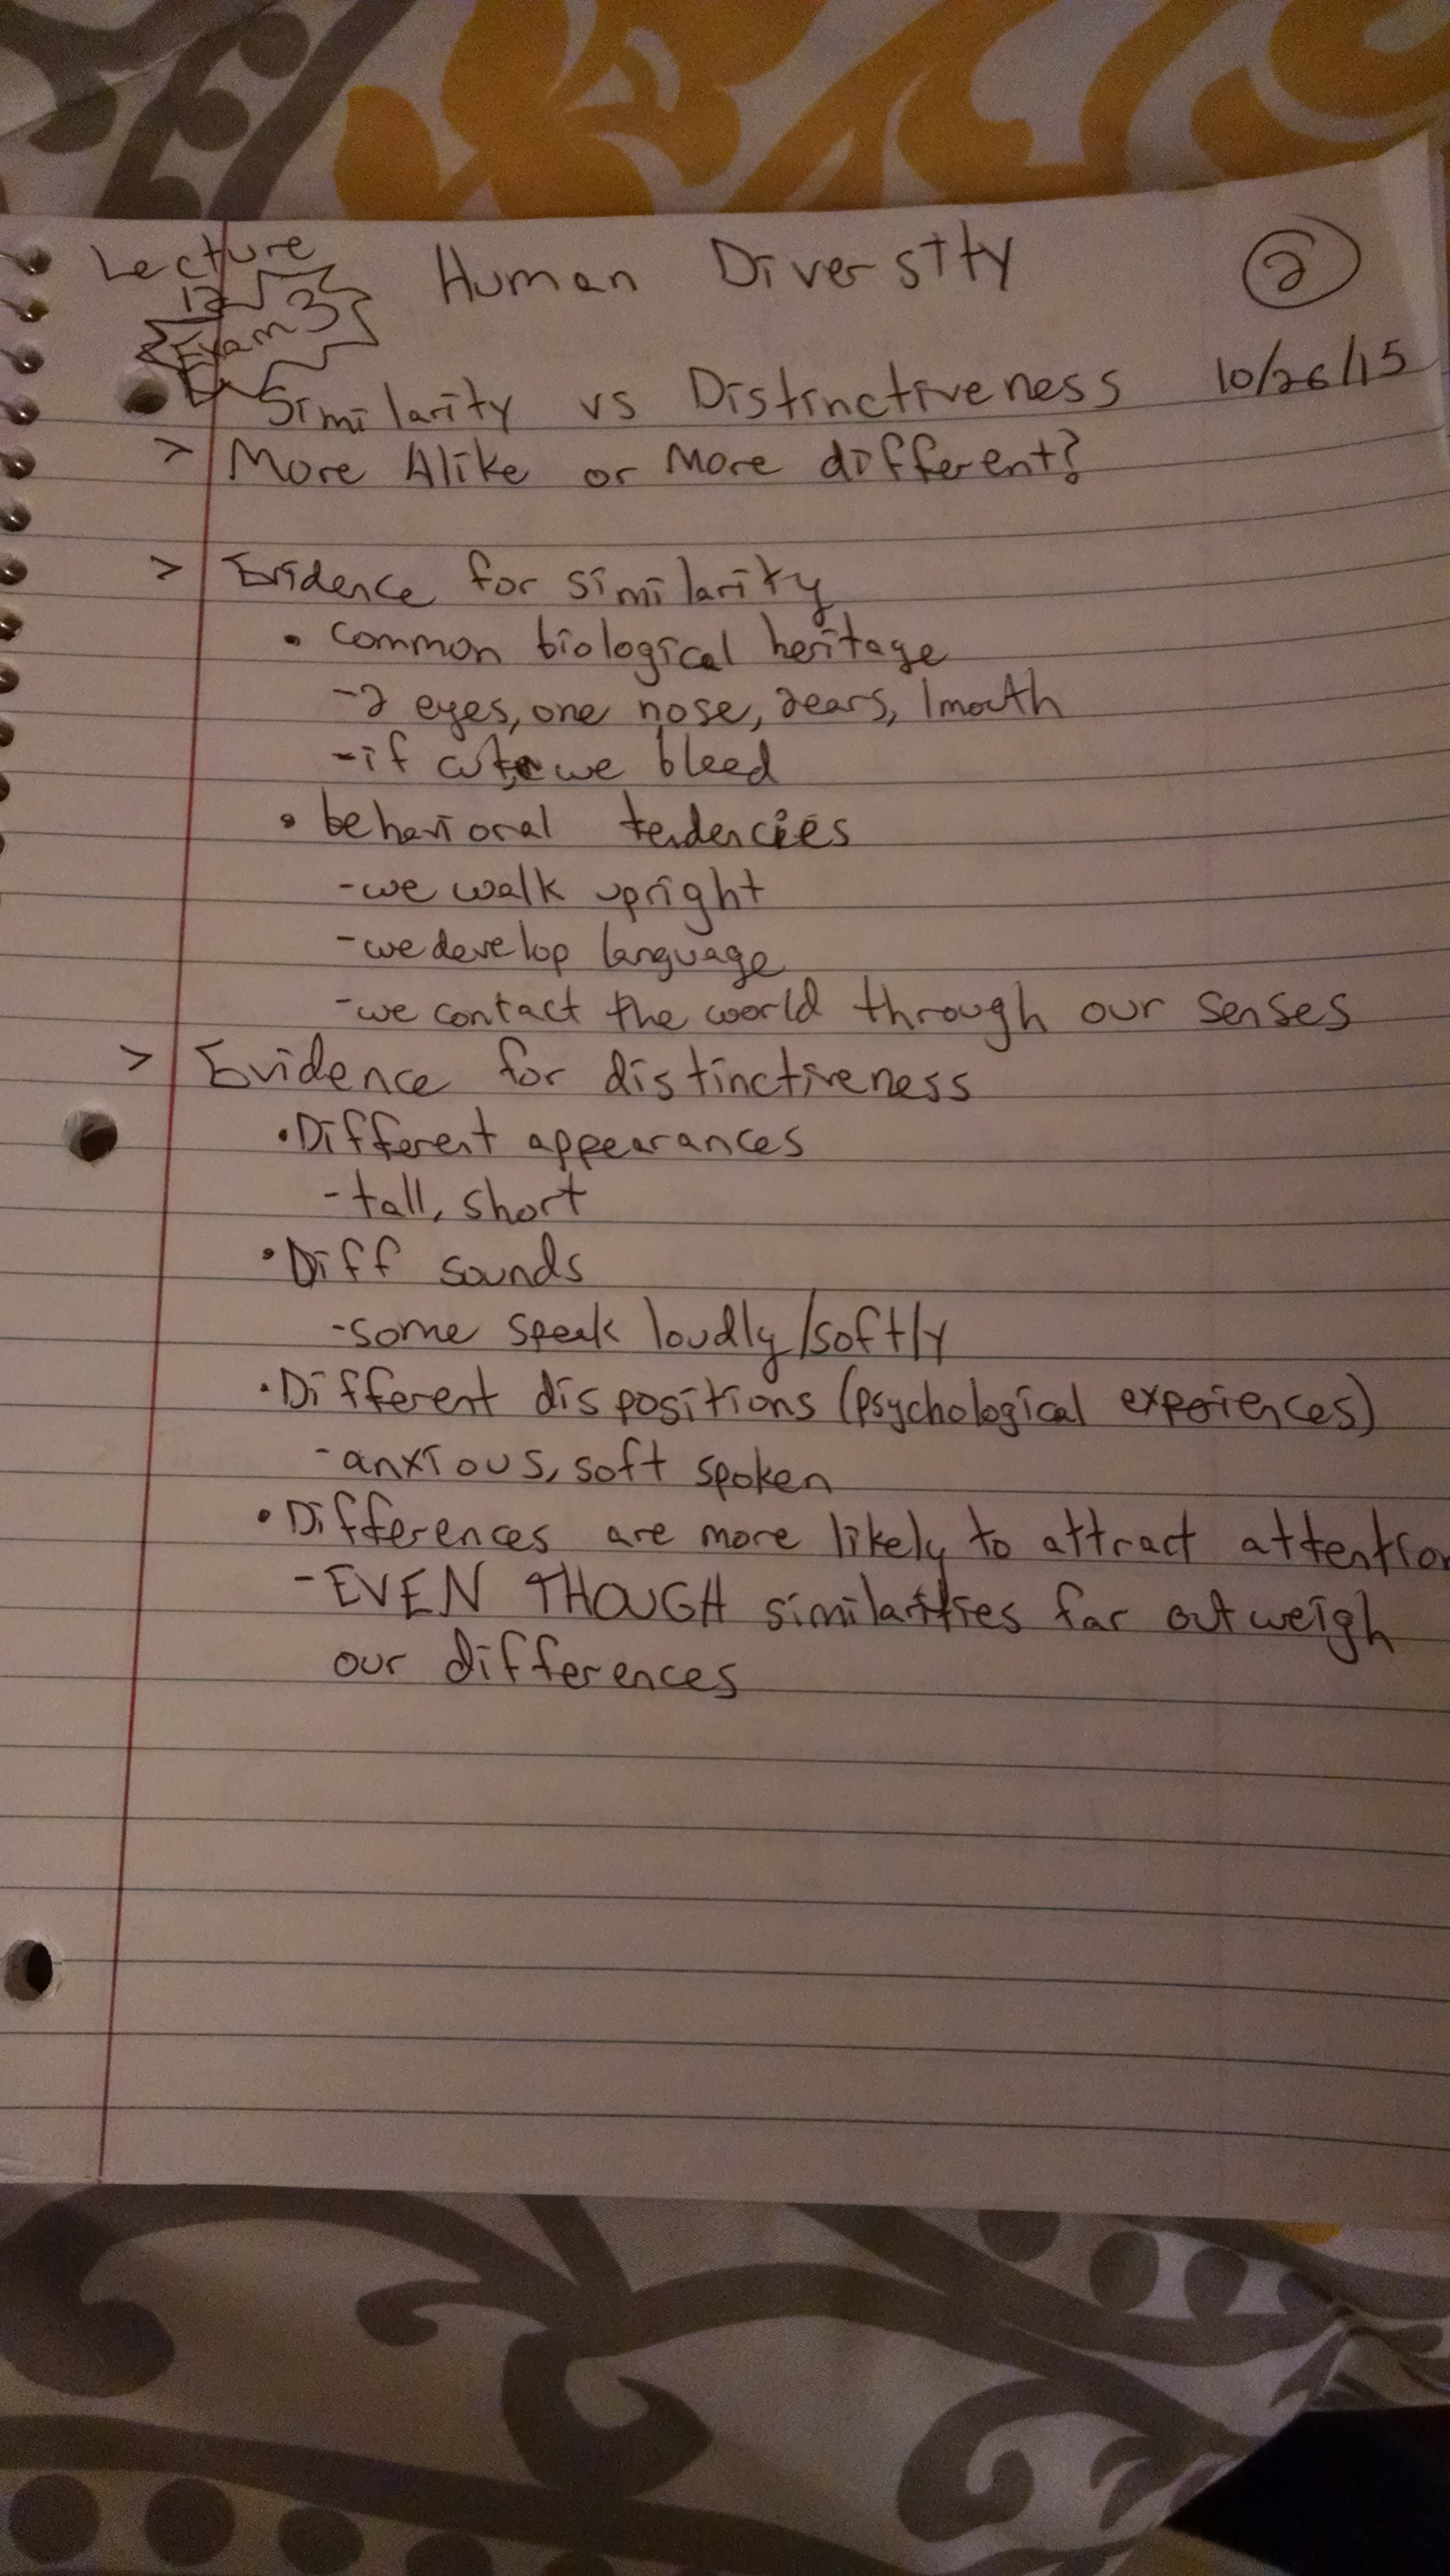 Lecture
12
Exam 3
Human Diversity
2
10/26/15
Similarity vs Distinctiveness
> More Alike or More different?
> Evidence for similarity
• common biological heritage
-2 eyes, one nose, 2ears, 1mouth
-if cut, we bleed
• behavioral tendencies
-we walk upright
-we develop language
-we contact the world through our senses
> Evidence for distinctiveness
•Different appearances
-tall, short
•Diff sounds
-some speak loudly/softly
•Different dispositions (psychological experiences)
-anxious, soft spoken
•Differences are more likely to attract attention
-EVEN THOUGH similarities far outweigh
our differences